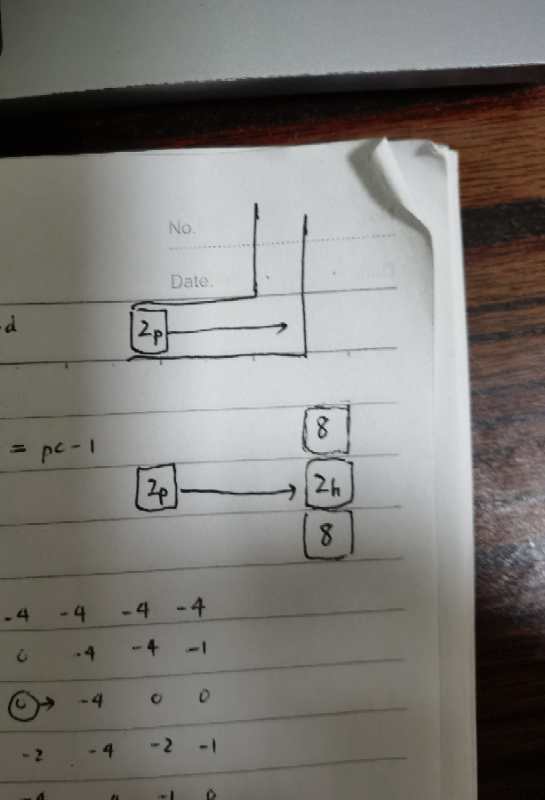 No.
Date.
d
2p
8
= pc - 1
2p 2h
8
-4 -4 -4 -4
0 -4 -4 -1
0 -4 0 0
-2 -4 -2 -1
-4 0 -1 0